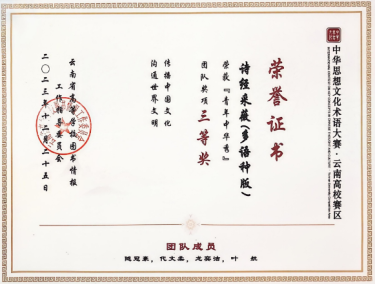 中华思想文化术语大赛·云南高校赛区
荣誉证书
诗经采薇(多语种版)
荣获『青年中华秀』
团队奖项 三等奖
传播中国文化
沟通世界文明
云南省高等学校图书情报
工作指导委员会
二〇二三年十二月二十五日
团队成员
代文柔, 龙奕洁, 叶